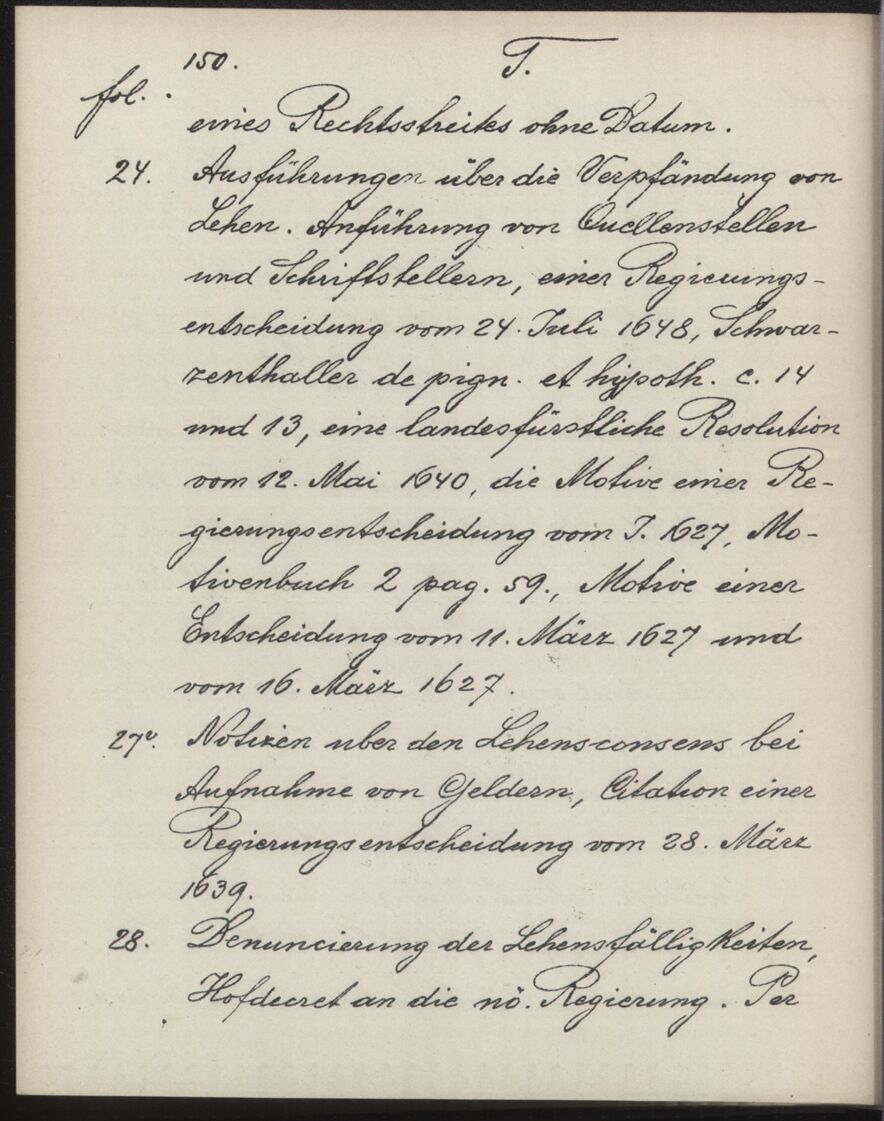 150. T.
fol.
eines Rechtsstreites ohne Datum.
24. Ausführungen über die Verpfändung von
Lehen. Anführung von Quellenstellen
und Schriftstellern, einer Regierungs-
entscheidung vom 24. Juli 1648, Schwar-
zenthaller de pign. et hypoth. c. 14
und 13, eine landesfürstliche Resolution
vom 12. Mai 1640, die Motive einer Re-
gierungsentscheidung vom J. 1627, Mo-
tivenbuch 2 pag. 59., Motive einer
Entscheidung vom 11. März 1627 und
vom 16. März 1627.
27v. Notizen uber den Lehensconsens bei
Aufnahme von Geldern, Citation einer
Regierungsentscheidung vom 28. März
1639.
28. Denuncierung der Lehensfälligkeiten,
Hofdecret an die nö. Regierung. Per